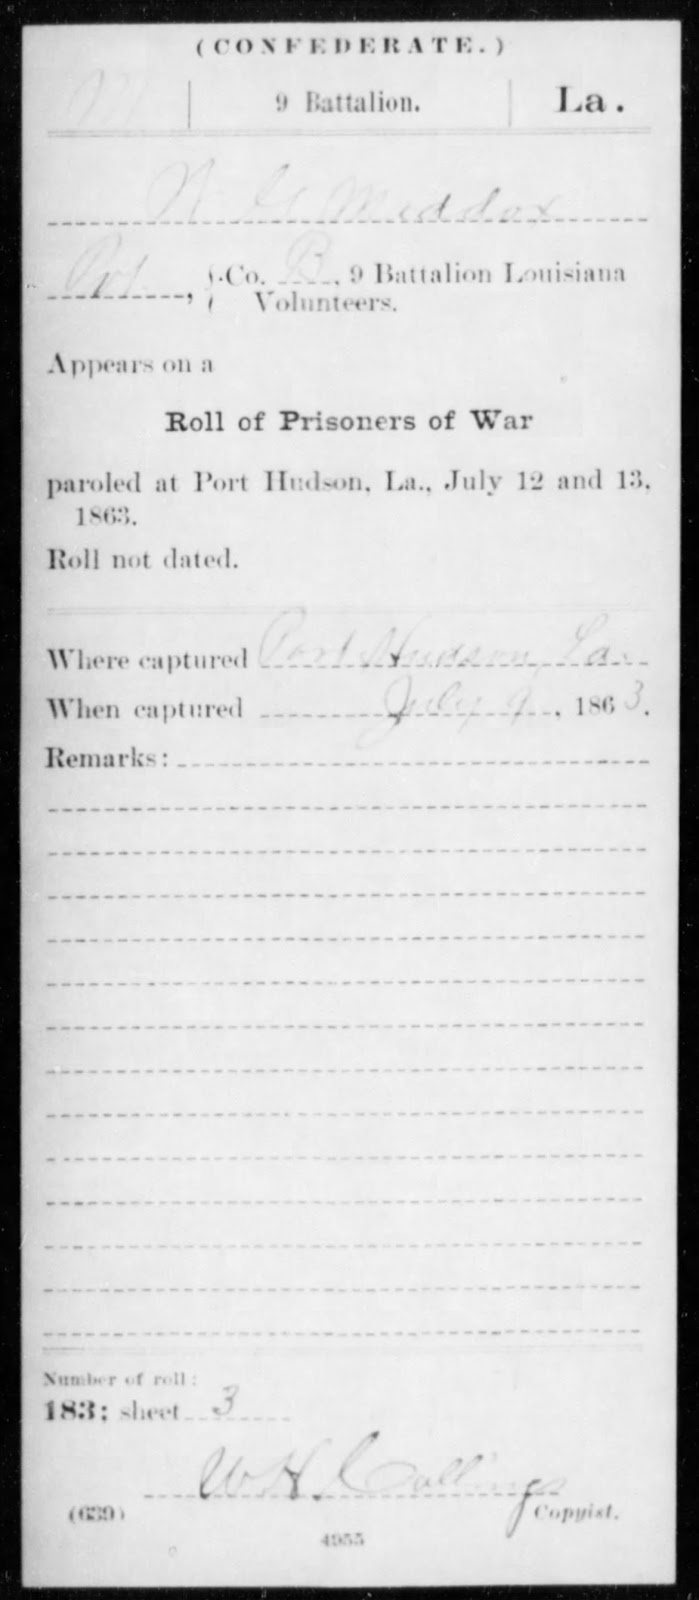 (CONFEDERATE.)
M | 9 Battalion. | La.
Meddox
Pvt, }Co. B, 9 Battalion Louisiana
Volunteers.
Appears on a
Roll of Prisoners of War
paroled at Port Hudson, La., July 12 and 13,
1863.
Roll not dated.
Where captured Port Hudson, La.
When captured July 9, 1863.
Remarks:
Number of roll:
183; sheet 3
W H Collings
(639) Copyist.
4955